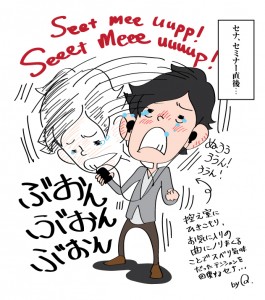 Seet mee uupp!
Seeet Meee uuuup!
セナ、セミナー直後…
ぬぅぅ
ううん!
ううん!
ぶおん
ぶおん
ぶおん
控え室に
ひきこもり、
お気に入りの
曲にノリまくる
ことでスベリ気味
だったテンションを
回復するセナ…
by Q.